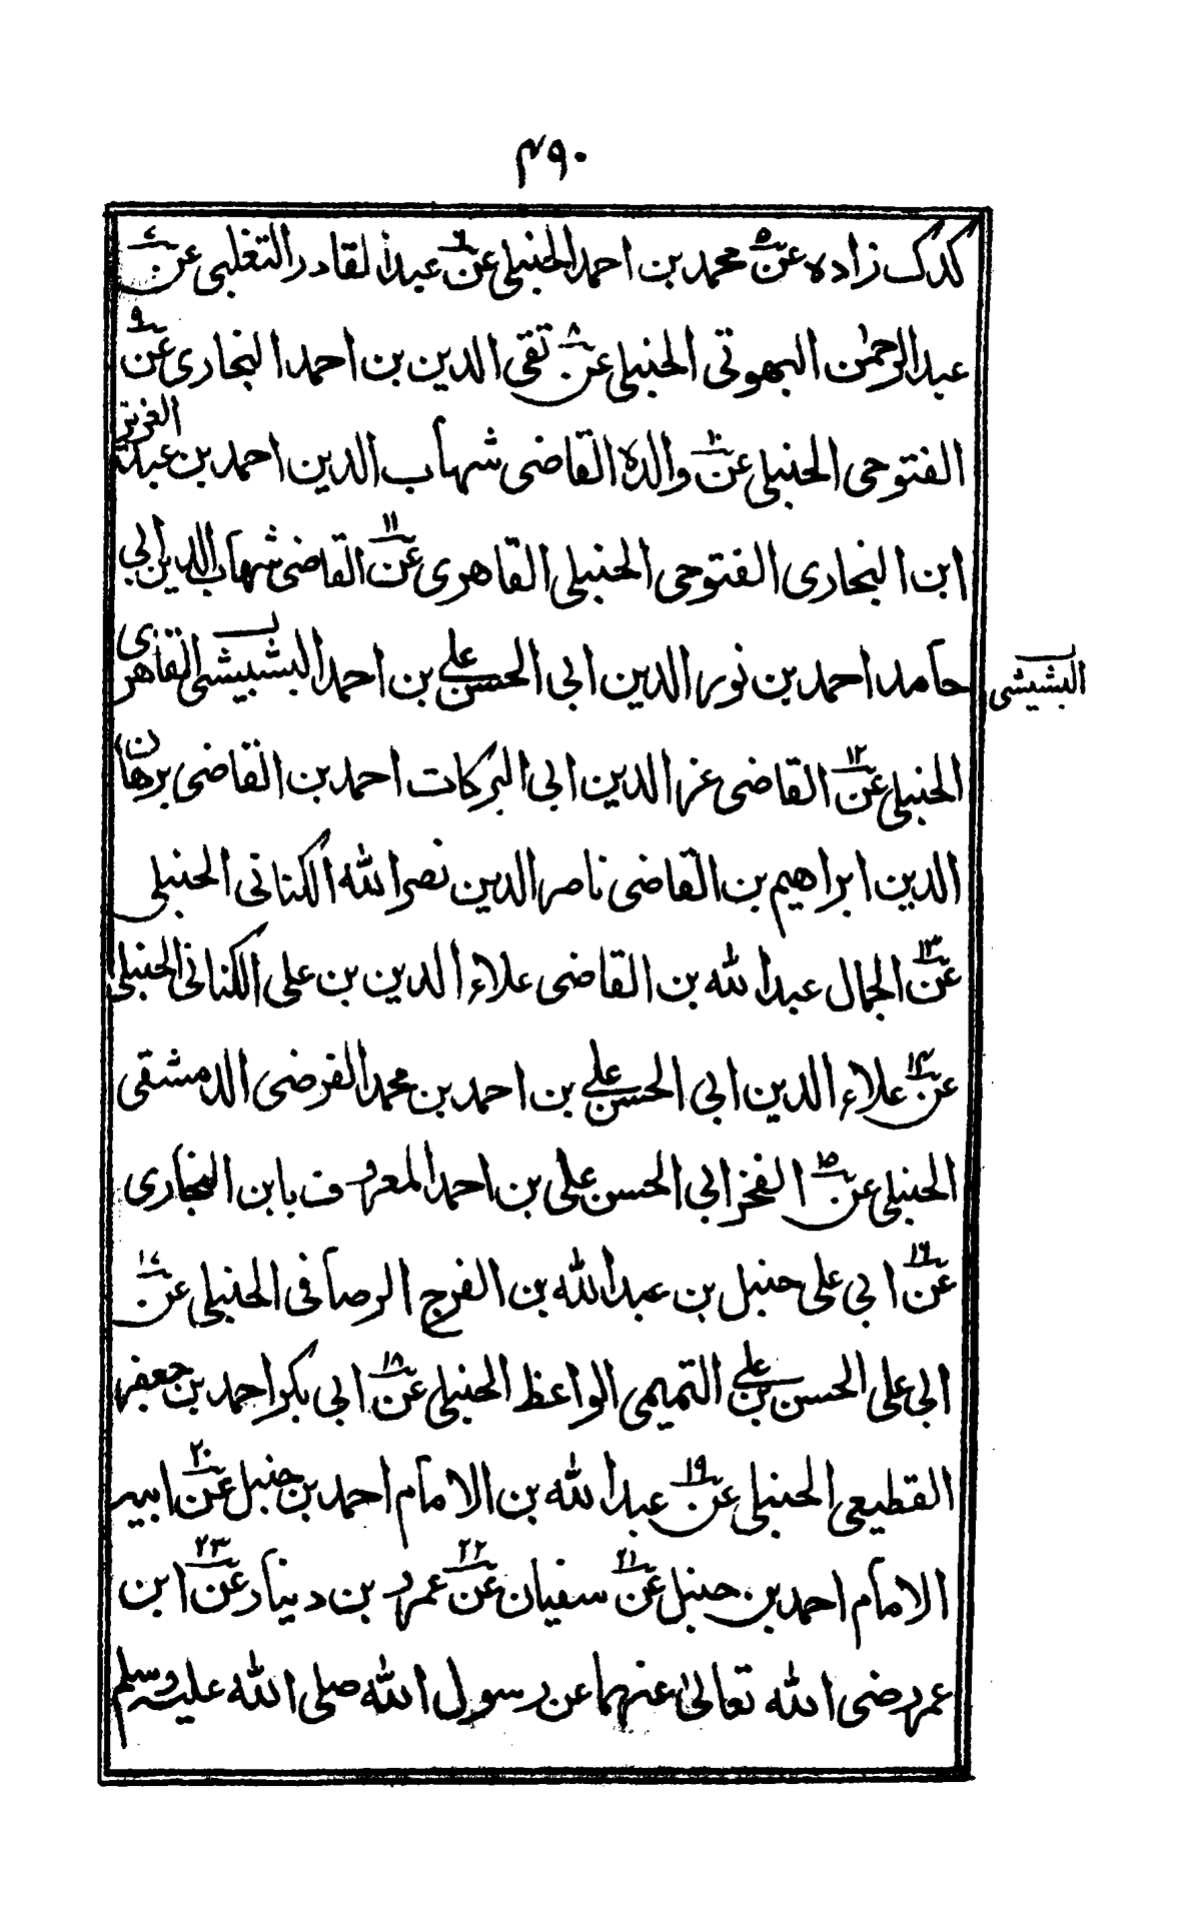 ٤٩٠
كدك زاده عن۵ محمد بن احمد الحنبلى عن۶ عبد القادر التغلبى عن۷
عبد الرحمٰن البهوتى الحنبلى عن۸ تقى الدين بن احمد النجارى عن۹
الفتوحى الحنبلى عن۱۰ والده القاضى شهاب الدين احمد بن عبد العزيز
ابن النجارى الفتوحى الحنبلى القاهرى عن۱۱ القاضى شهاب الدين ابى
حامد احمد بن نور الدين ابى الحسن على بن احمد البشبيشى القاهرى
البشيشى
الحنبلى عن۱۲ القاضى عز الدين ابى البركات احمد بن القاضى برهان
الدين ابراهيم بن القاضى ناصر الدين نصر الله الكنانى الحنبلى
عن۱۳ الجمال عبد الله بن القاضى علاء الدين بن على الكنانى الحنبلى
عن۱۴ علاء الدين ابى الحسن على بن احمد بن محمد الفرضى الدمشقى
الحنبلى عن۱۵ الفخر ابى الحسن على بن احمد المعروف بابن البخارى
عن۱۶ ابى على حنبل بن عبد الله بن الفرج الرصافى الحنبلى عن۱۷
ابى على الحسن بن على التميمى الواعظ الحنبلى عن۱۸ ابى بكر احمد بن جعفر
القطيعى الحنبلى عن۱۹ عبد الله بن الامام احمد بن حنبل عن۲۰ ابيه
الامام احمد بن حنبل عن۲۱ سفيان عن۲۲ عمرو بن دينار عن۲۳ ابن
عمر رضى الله تعالىٰ عنهما عن رسول الله صلى الله عليه وسلم